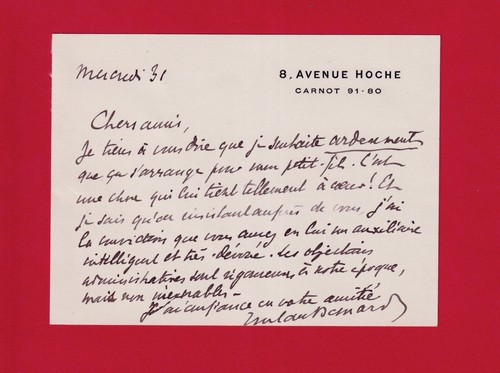 mercredi 31
8, AVENUE HOCHE
CARNOT 91-80
Chers amis,
Je tiens à vous dire que je souhaite ardemment
que ça s'arrange pour mon petit-fils. C'est
une chose qui lui tient tellement à cœur! Et
je sais qu'en insistant auprès de vous, j'ai
la conviction que vous aurez en lui un auxiliaire
intelligent et très dévoué. Les objections
administratives sont rigoureuses à notre époque,
mais non inexorables -
J'ai confiance en votre amitié
Tristan Bernard